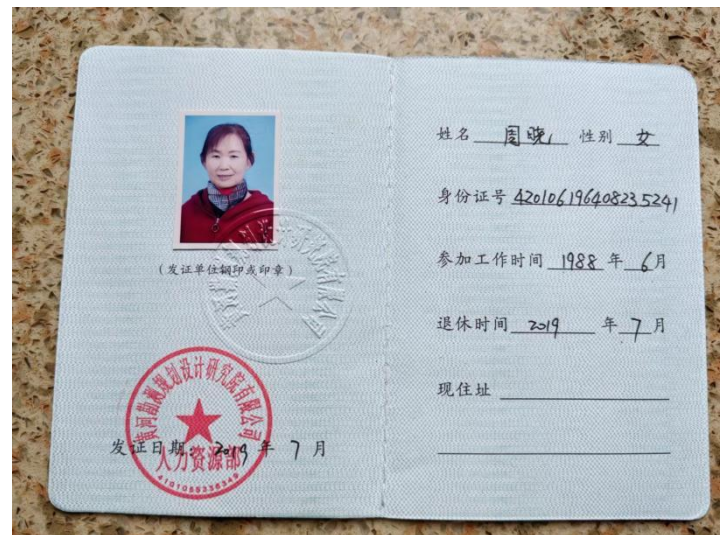 (发证单位钢印或印章)
黄河勘测规划设计研究院有限公司
人力资源部
4101055336349
发证日期: 2019 年 7 月
姓名 周晓 性别 女
身份证号 420106196408235241
参加工作时间 1988 年 6月
退休时间 2019 年 7 月
现住址